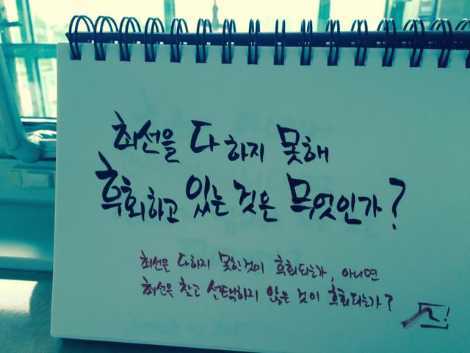 최선을 다하지 못해
후회하고 있는 것은 무엇인가?
최선을 다하지 못한 것이 후회되는가, 아니면
최선을 찾고 선택하지 않은 것이 후회되는가?